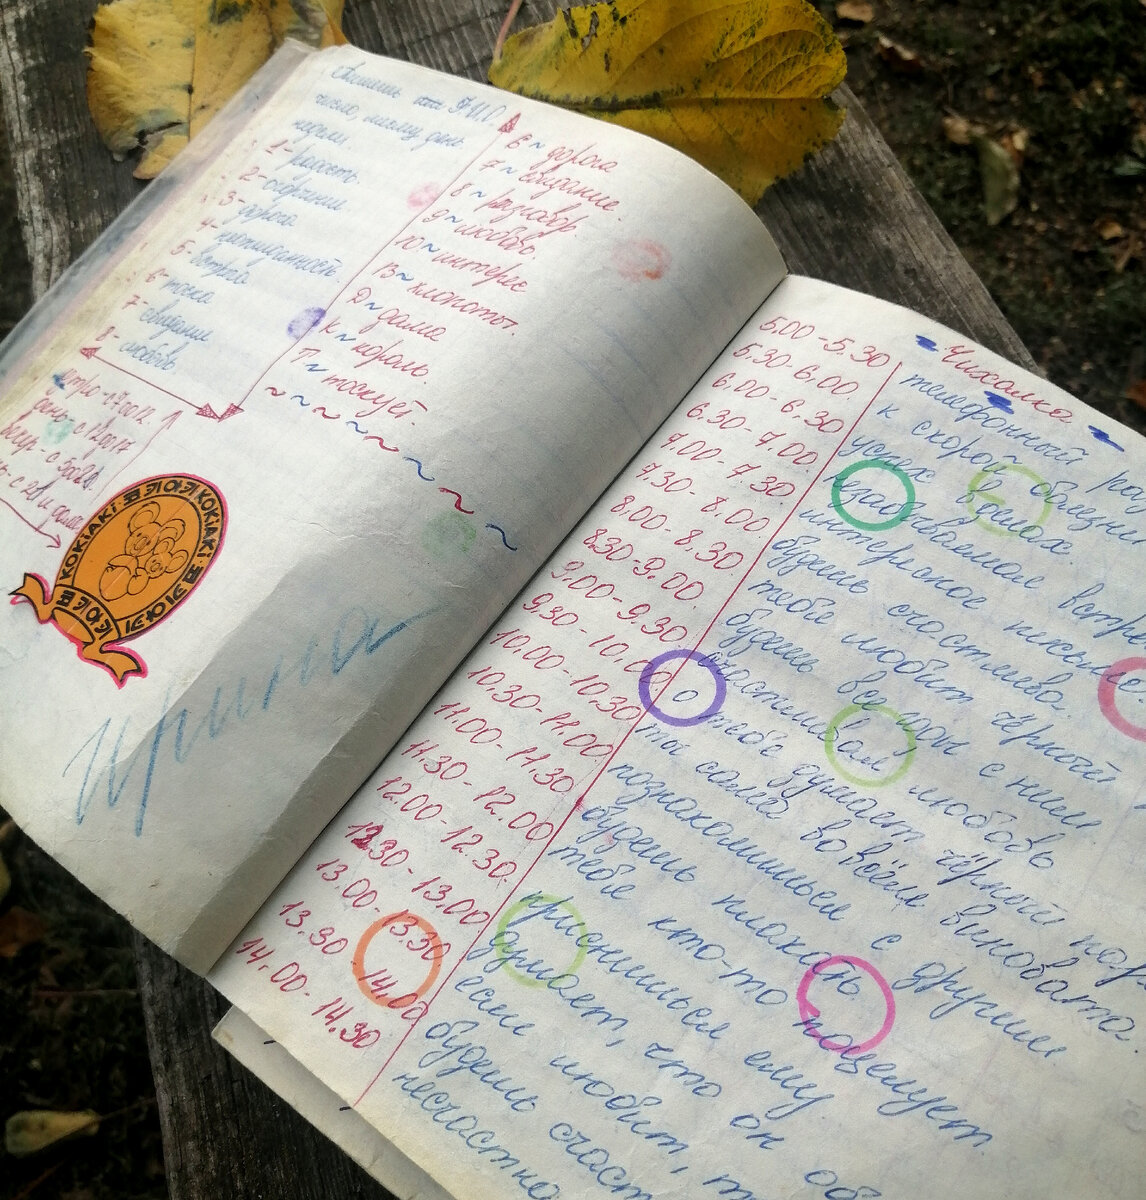 число, месяц, день
недели
1- радость.
2-
3- дорога
4- неожиданность
5- второй
6- тоска
7- свидание
8- любовь.
6 ~ дорога
7 ~ свидание.
8 ~ разговор.
9 ~ любовь.
10 ~ интерес
В ~ хлопоты.
Д ~ дама
К ~ король.
Т ~ тоскует.
утро - 17 00 12
день - с 12 00 17
вечер - с
KOKIAKI 코키아키 KOKIAKI 코키아키
Ирина
~ Чихалка ~
5.00 - 5.30 телефонный
5.30 - 6.00. к скорой болезни
6.00 - 6.30 успех в делах
6.30 - 7.00 встреча
7.00 - 7.30 интересное письмо
7.30 - 8.00 будешь счастлива.
8.00 - 8.30 тебя любит чёрный
8.30 - 9.00. будешь с ним
9.00 - 9.30 счастливая любовь
9.30 - 10.00 о тебе думает чёрный
10.00 - 10.30 ты сама во всём виновата.
10.30 - 11.00 познакомишься с другим
11.00 - 11.30 будешь плакать.
11.30 - 12.00 тебя кто-то поцелует
12.00 - 12.30. приснишься ему.
12.30 - 13.00 думает, что он
13.00 - 13.30 если любит, т
13.30 14.00 будешь счаст
14.00 - 14.30 несчастна